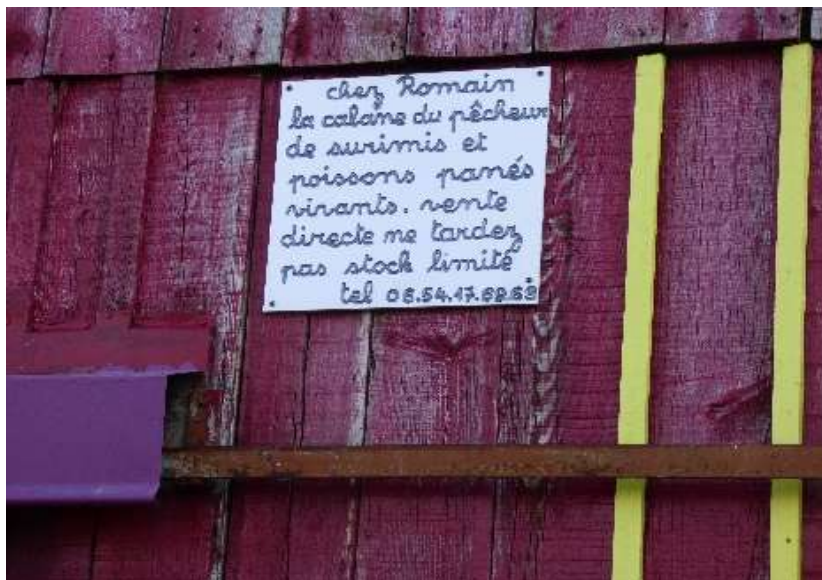 chez Romain
la cabane du pêcheur
de surimis et
poissons panés
vivants. vente
directe ne tardez
pas stock limité
tel 06.54.17.69.69